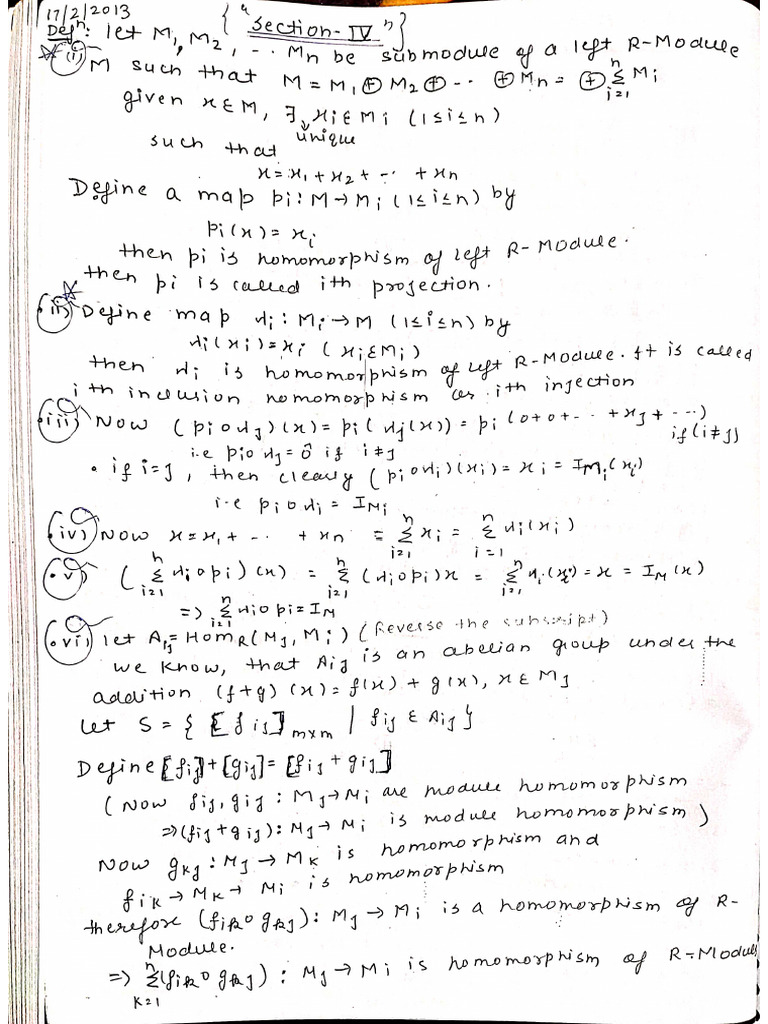 17/2/2013 {"Section-IV"}
Defn: let M1, M2, ... Mn be submodule of a left R-Module
(i) M such that M = M1 ⊕ M2 ⊕ ... ⊕ Mn = ⊕ n Σ i=1 Mi
given x ∈ M, ∃ xi ∈ Mi (1≤i≤n)
unique
such that
x = x1 + x2 + ... + xn
Define a map pi : M → Mi (1≤i≤n) by
pi(x) = xi
then pi is homomorphism of left R-Module.
then pi is called ith projection.
(ii) Define map λi : Mi → M (1≤i≤n) by
λi(xi) = xi (xi ∈ Mi)
then λi is homomorphism of left R-Module. It is called
ith inclusion homomorphism or ith injection
(iii) Now (pi o λj)(x) = pi(λj(x)) = pi(0+0+...+xj+...)
if (i≠j)
i.e pi o λj = 0̂ if i≠j
• if i=j, then clearly (pi o λi)(xi) = xi = IMi(xi)
i.e pi o λi = IMi
(iv) Now x = x1 + ... + xn = n Σ i=1 xi = n Σ i=1 λi(xi)
(v) (n Σ i=1 λi o pi)(x) = n Σ i=1 (λi o pi)x = n Σ i=1 λi(xi) = x = IM(x)
=> n Σ i=1 λi o pi = IM
(vi) let Aij = HomR(Mj, Mi) (Reverse the subscript)
we know, that Aij is an abelian group under the
addition (f+g)(x) = f(x) + g(x), x ∈ Mj
Let S = { [fij] m×m | fij ∈ Aij }
Define [fij] + [gij] = [fij + gij]
(Now fij, gij : Mj → Mi are module homomorphism
=> (fij + gij) : Mj → Mi is module homomorphism)
Now gkj : Mj → Mk is homomorphism and
fik → Mk → Mi is homomorphism
therefore (fik o gkj) : Mj → Mi is a homomorphism of R-
Module.
=> n Σ k=1 (fik o gkj) : Mj → Mi is homomorphism of R-Module